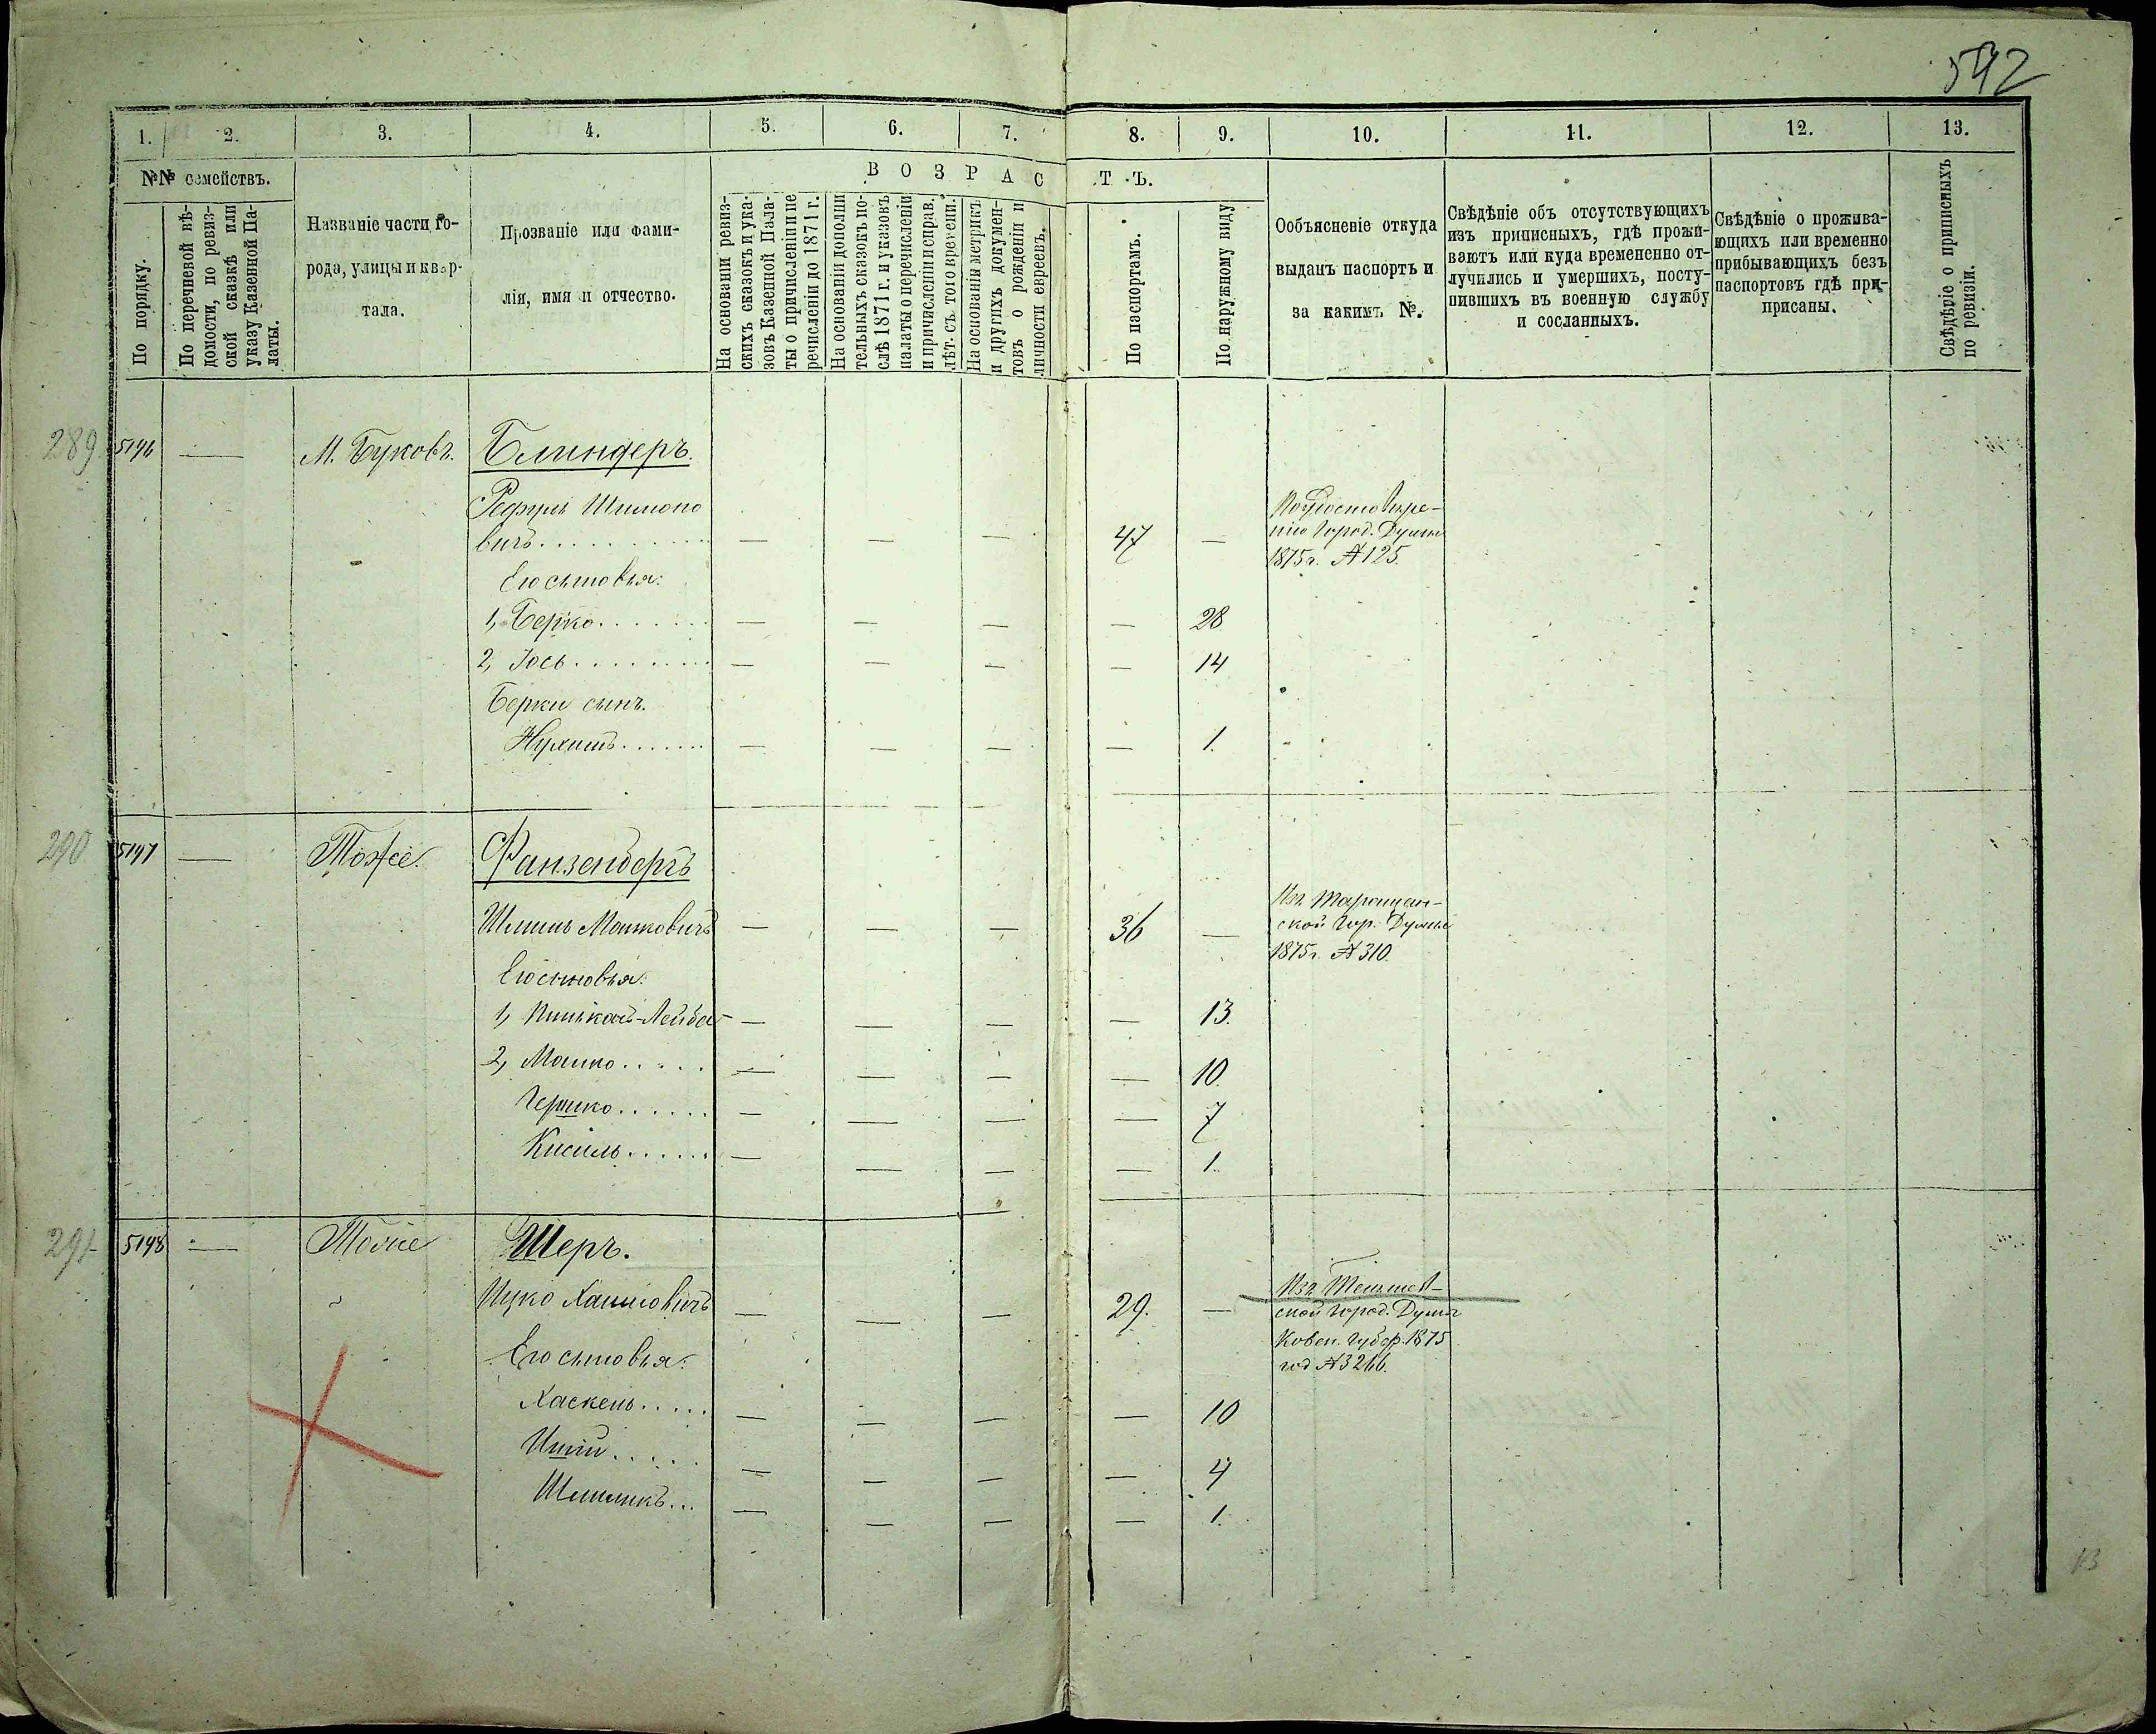 542
1. 2. 3. 4. 5. 6. 7. 8. 9. 10. 11. 12. 13.
№№ семействъ.
ВОЗРАСТЪ.
По порядку.
По перечневой вѣ-
домости, по ревиз-
ской сказкѣ или
указу Казенной Па-
латы.
Названіе части го-
рода, улицы и квар-
тала.
Прозваніе или фами-
лія, имя и отчество.
На основаніи ревиз-
скихъ сказокъ и ука-
зовъ Казенной Пала-
ты о причисленіи и пе
речисленіи до 1871 г.
На основаніи дополни
тельныхъ сказокъ по-
слѣ 1871 г. и указовъ
палаты о перечисленіи
и причисленіи и справ.
лѣт. съ того времени.
На основаніи метрикъ
и другихъ докумен-
товъ о рожденіи и
личности евреевъ.
По паспортамъ.
По наружному виду
Ообъясненіе откуда
выданъ паспортъ и
за какимъ №.
Свѣдѣніе объ отсутствующихъ
изъ приписныхъ, гдѣ прожи-
ваютъ или куда временно от-
лучились и умершихъ, посту-
пившихъ въ военную службу
и сосланныхъ.
Свѣдѣніе о прожива-
ющихъ или временно
прибывающихъ безъ
паспортовъ гдѣ при-
присаны.
Свѣдѣніе о приписныхъ
по ревизіи.
289 5196 — М. Буковъ. Блиндеръ.
Рефуль Шимоно
вичъ — — — 47 —
По удостовѣре-
нію Город. Думы
1875 г. № 125.
Его сыновья:
1, Берко — — — — 28
2, Іось — — — — 14
Берки сынъ.
Нухимъ — — — — 1.
290 5197 — Тоже. Фанзенбергъ
Шлиома Мошковичъ — — — 36 —
Изъ Таращан-
ской Гор. Думы
1875 г. № 310.
Его сыновья:
1, Пинькасъ-Лейба — — — — 13.
2, Мошко — — — — 10.
Гершко — — — — 7
Кисиль — — — — 1.
291 5198 — Тоже Шеръ.
Ицко Хаимовичъ — — — 29. —
Изъ Тельшев-
ской Город. Думы
Ковен. Губер. 1875
год № 3266.
Его сыновья:
Хаскель — — — — 10
— — — — 4
Шмиликъ — — — — 1.
13